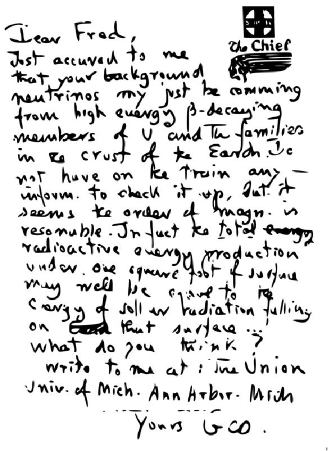 Dear Fred,
The Chief
Just accured to me
that your background
neutrinos my just be comming
from high energy β-decaying
members of U and Th families
in the crust of the Earth. I do
not have on the train any
inform. to check it up, but it
seems the order of magn. is
resonable. In fact the total energy
radioactive energy production
under one square foot of surface
may well be equal to the
energy of solar radiation falling
on that surface...
What do you think?
Write to me at: The Union
Univ. of Mich. Ann Arbor. Mich
Yours GEO.